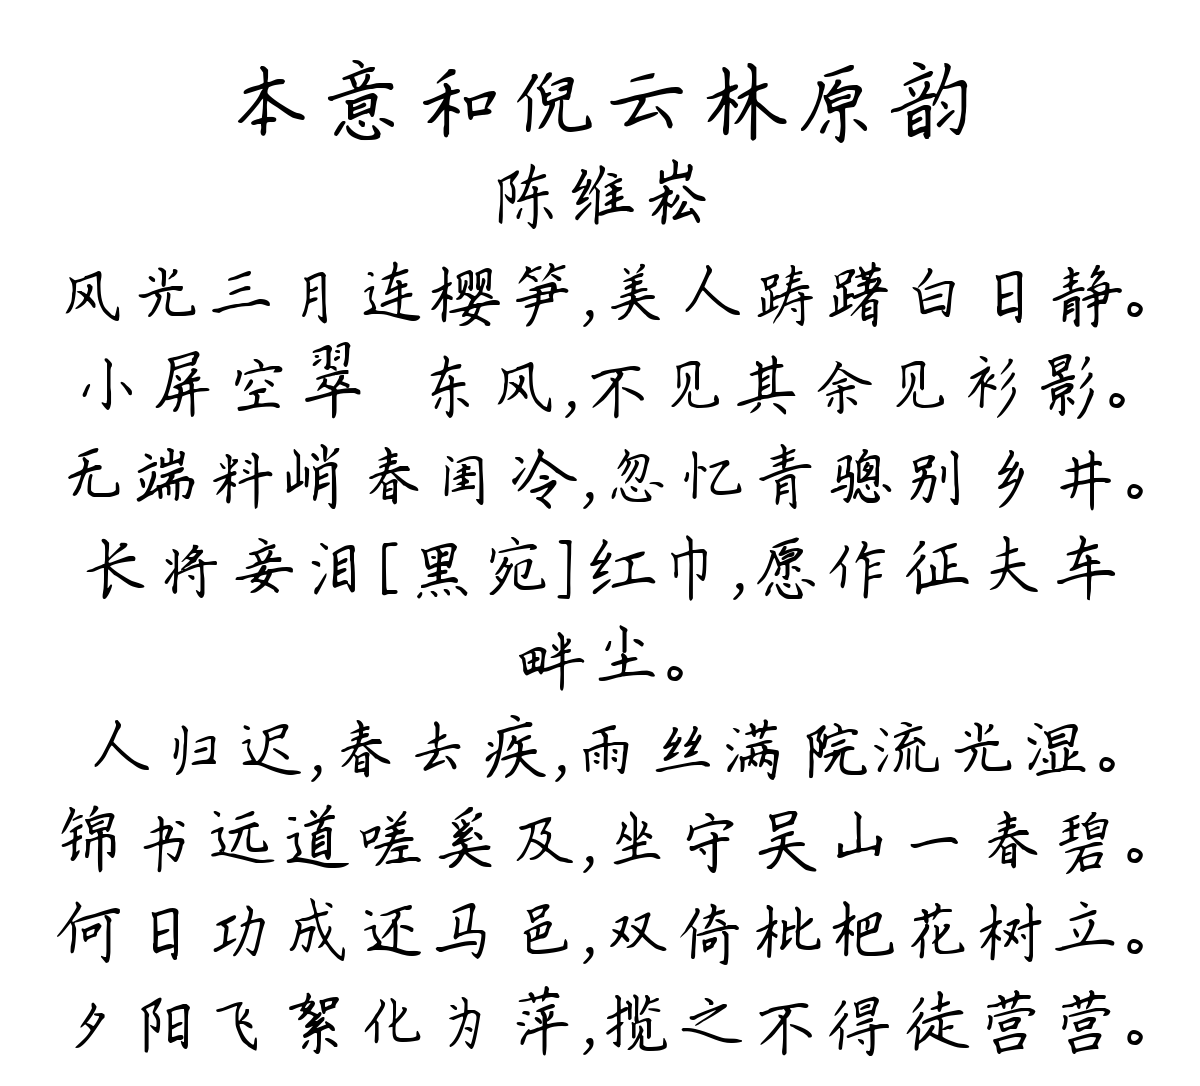 本意和倪云林原韵
陈维崧
风光三月连樱笋,美人踌躇白日静。
小屏空翠 东风,不见其余见衫影。
无端料峭春闺冷,忽忆青骢别乡井。
长将妾泪[黑宛]红巾,愿作征夫车
畔尘。
人归迟,春去疾,雨丝满院流光湿。
锦书远道嗟奚及,坐守吴山一春碧。
何日功成还马邑,双倚枇杷花树立。
夕阳飞絮化为萍,揽之不得徒营营。